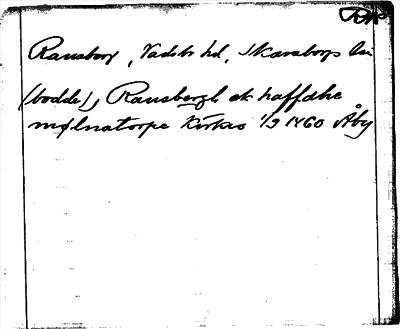 Ransberg, Vadsbo hd, Skaraborgs län
(bodde), Ransbergh ok haffdhe
mølnatorpe Kirkio 1/9 1460 Åby